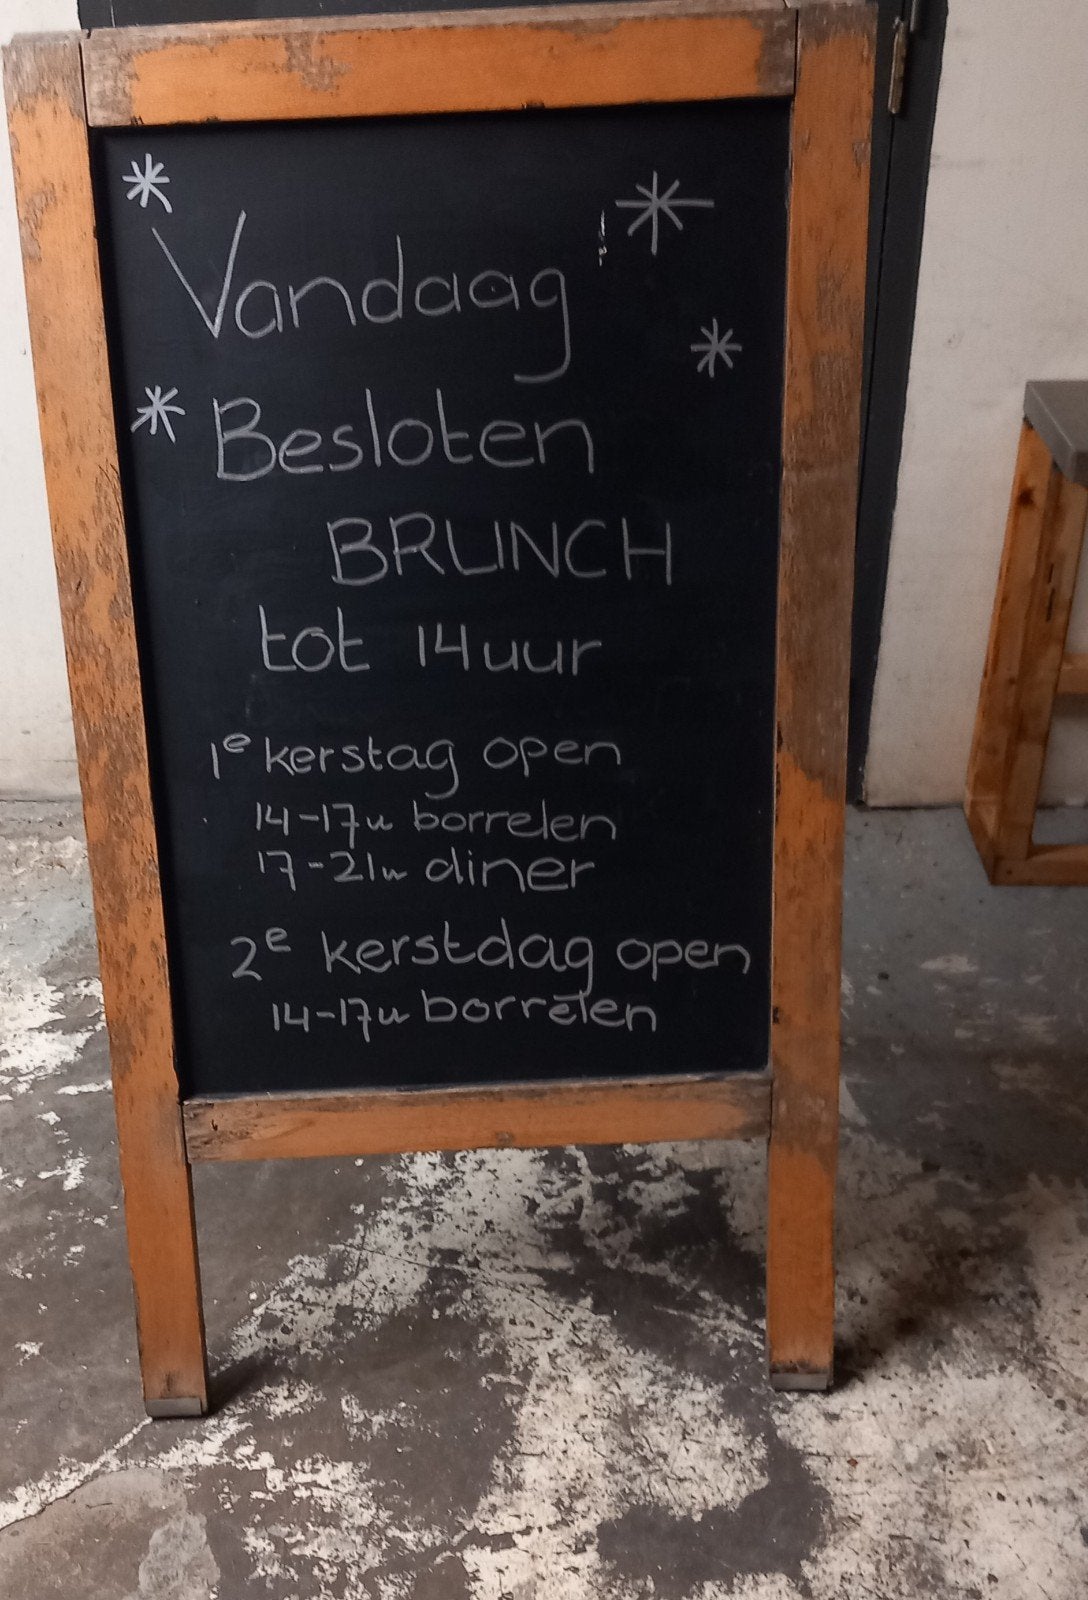 Vandaag
Besloten
BRUNCH
tot 14uur
1e kerstag open
14-17u borrelen
17-21u diner
2e kerstdag open
14-17u borrelen